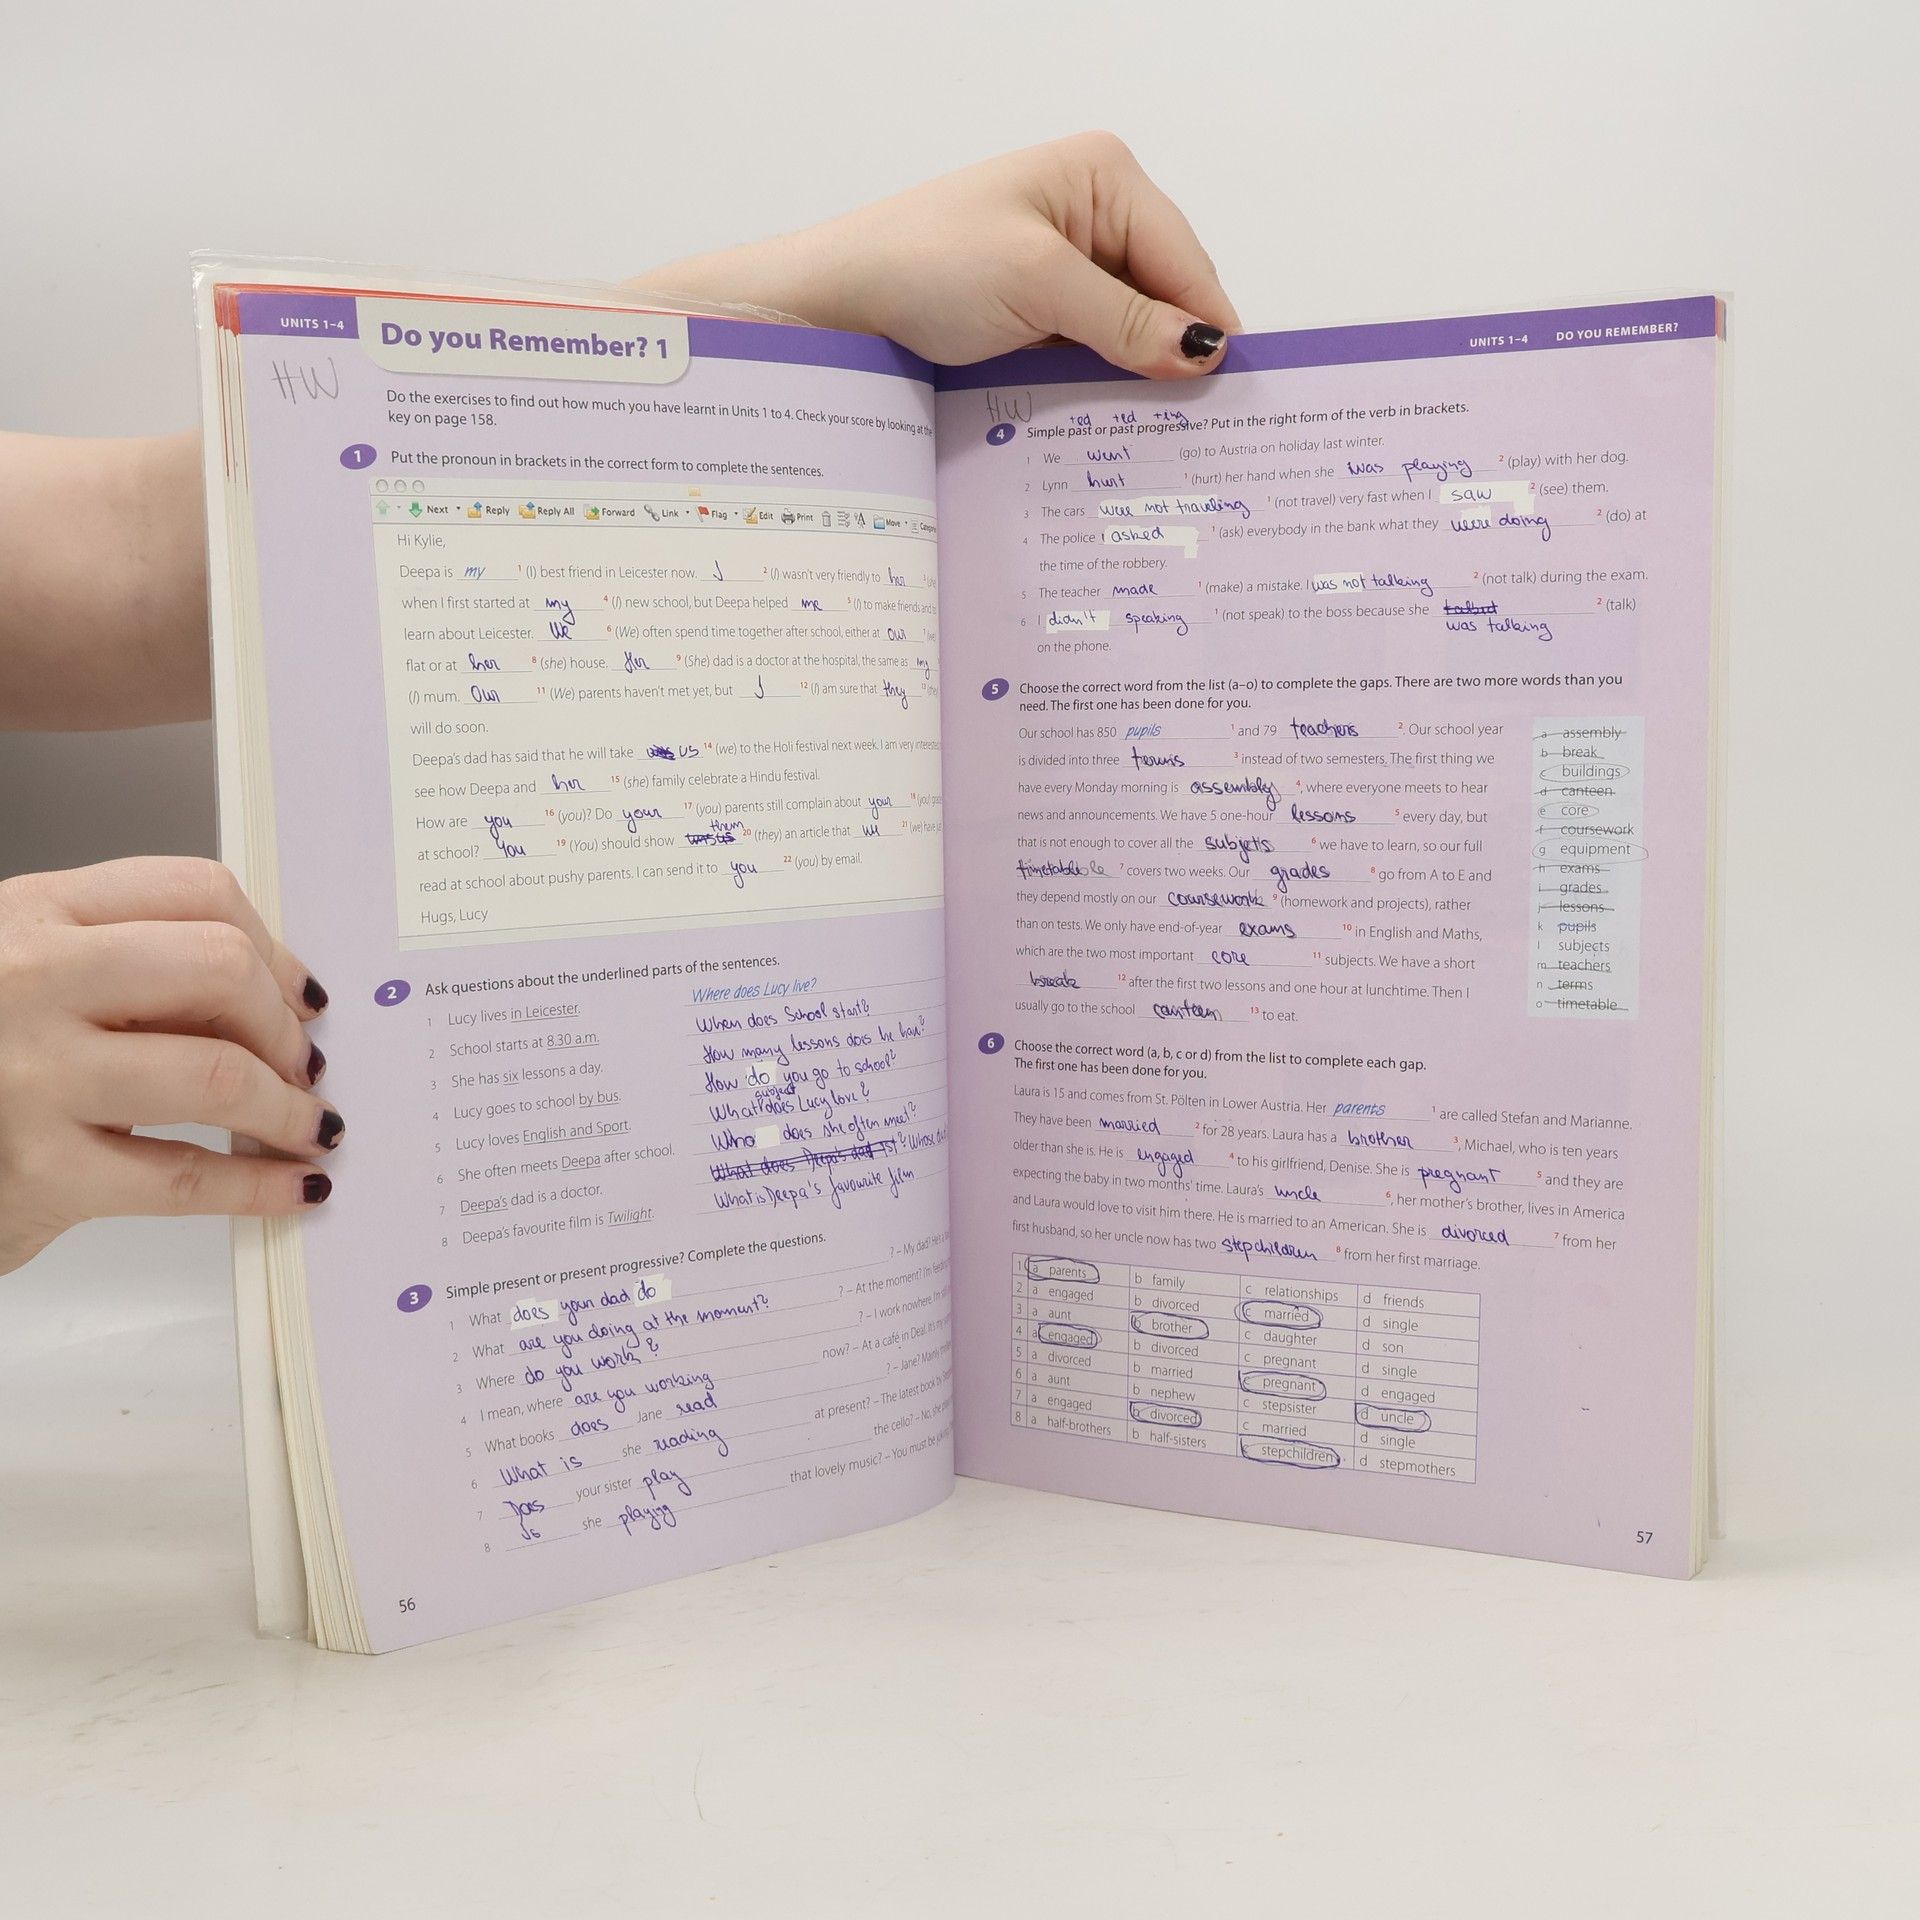 UNITS 1–4
Do you Remember? 1
HW
Do the exercises to find out how much you have learnt in Units 1 to 4. Check your score by looking at the
key on page 158.
1 Put the pronoun in brackets in the correct form to complete the sentences.
Next Reply Reply All Forward Link Flag Edit Print Move
Hi Kylie,
Deepa is my 1 (I) best friend in Leicester now. I 2 (I) wasn't very friendly to her 3
when I first started at my 4 (I) new school, but Deepa helped me 5 (I) to make friends and
learn about Leicester. We 6 (We) often spend time together after school, either at our 7
flat or at her 8 (she) house. Her 9 (She) dad is a doctor at the hospital, the same as my
(I) mum. Our 11 (We) parents haven't met yet, but I 12 (I) am sure that they 13
will do soon.
Deepa's dad has said that he will take us 14 (we) to the Holi festival next week. I am very
see how Deepa and her 15 (she) family celebrate a Hindu festival.
How are you 16 (you)? Do your 17 (you) parents still complain about your 18 (you)
at school? You 19 (You) should show them 20 (they) an article that we 21 (we) have
read at school about pushy parents. I can send it to you 22 (you) by email.
Hugs, Lucy
2 Ask questions about the underlined parts of the sentences.
1 Lucy lives in Leicester. Where does Lucy live?
2 School starts at 8.30 a.m. When does School start?
3 She has six lessons a day. How many lessons does he have?
4 Lucy goes to school by bus. How do you go to school?
5 Lucy loves English and Sport. What subject does Lucy love?
6 She often meets Deepa after school. Who does she often meet?
7 Deepa's dad is a doctor. What does Deepa's dad is? Whose
8 Deepa's favourite film is Twilight. What is Deepa's favourite film
3 Simple present or present progressive? Complete the questions.
1 What does your dad do ? – My dad? He's a
2 What are you doing at the moment? ? – At the moment? I'm
3 Where do you work? ? – I work nowhere. I'm
4 I mean, where are you working now? – At a café in Deal. It's my
5 What books does Jane read ? – Jane? Mainly
6 What is she reading at present? – The latest book by
7 Does your sister play the cello? – No, she
8 Is she playing that lovely music? – You must be
56
UNITS 1–4 DO YOU REMEMBER?
HW
+ed +ed +ing
4 Simple past or past progressive? Put in the right form of the verb in brackets.
1 We went (go) to Austria on holiday last winter.
2 Lynn hurt 1 (hurt) her hand when she was playing 2 (play) with her dog.
3 The cars were not traveling 1 (not travel) very fast when I saw 2 (see) them.
4 The police asked 1 (ask) everybody in the bank what they were doing 2 (do) at
the time of the robbery.
5 The teacher made 1 (make) a mistake. I was not talking 2 (not talk) during the exam.
6 I didn't speaking 1 (not speak) to the boss because she talked 2 (talk)
was talking
on the phone.
5 Choose the correct word from the list (a–o) to complete the gaps. There are two more words than you
need. The first one has been done for you.
Our school has 850 pupils 1 and 79 teachers 2. Our school year
is divided into three terms 3 instead of two semesters. The first thing we
have every Monday morning is assembly 4, where everyone meets to hear
news and announcements. We have 5 one-hour lessons 5 every day, but
that is not enough to cover all the subjets 6 we have to learn, so our full
timetable 7 covers two weeks. Our grades 8 go from A to E and
they depend mostly on our coursework 9 (homework and projects), rather
than on tests. We only have end-of-year exams 10 in English and Maths,
which are the two most important core 11 subjects. We have a short
break 12 after the first two lessons and one hour at lunchtime. Then I
usually go to the school canteen 13 to eat.
a assembly
b break
c buildings
d canteen
e core
f coursework
g equipment
h exams
i grades
j lessons
k pupils
l subjects
m teachers
n terms
o timetable
6 Choose the correct word (a, b, c or d) from the list to complete each gap.
The first one has been done for you.
Laura is 15 and comes from St. Pölten in Lower Austria. Her parents 1 are called Stefan and Marianne.
They have been married 2 for 28 years. Laura has a brother 3, Michael, who is ten years
older than she is. He is engaged 4 to his girlfriend, Denise. She is pregnant 5 and they are
expecting the baby in two months' time. Laura's uncle 6, her mother's brother, lives in America
and Laura would love to visit him there. He is married to an American. She is divorced 7 from her
first husband, so her uncle now has two stepchildren 8 from her first marriage.
1 a parents b family c relationships d friends
2 a engaged b divorced c married d single
3 a aunt b brother c daughter d son
4 a engaged b divorced c pregnant d single
5 a divorced b married c pregnant d engaged
6 a aunt b nephew c stepsister d uncle
7 a engaged b divorced c married d single
8 a half-brothers b half-sisters c stepchildren d stepmothers
57